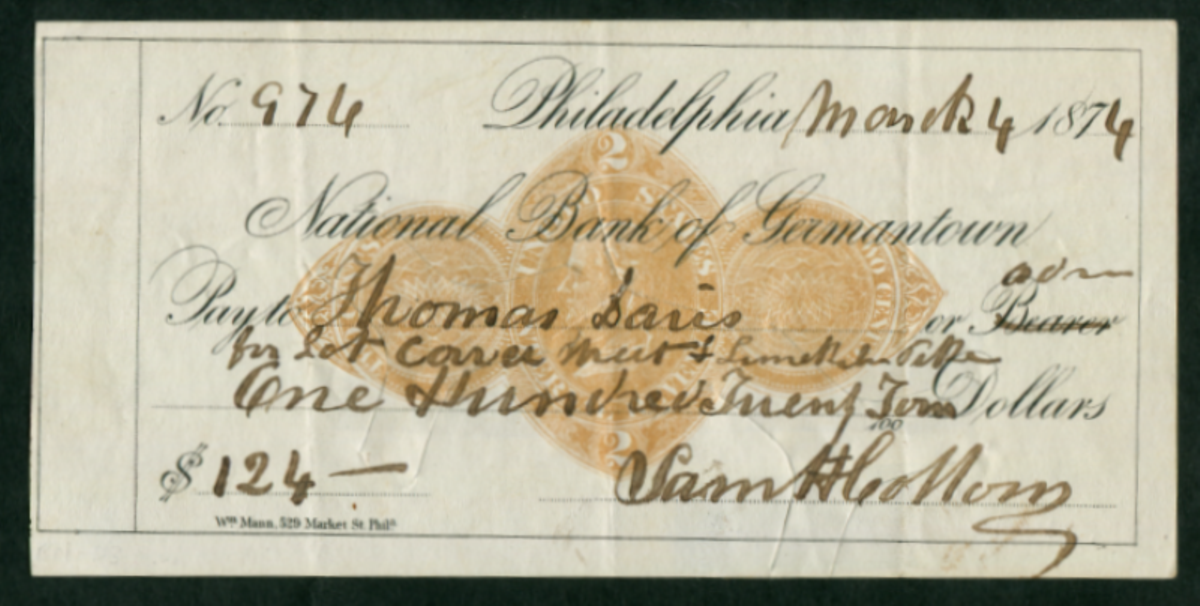 No. 974 Philadelphia March 4 1874
2
UNITED STATES
National Bank of Germantown
Pay to Thomas Davis or Bearer
for Lot corner &
One Hundred Twenty Four Dollars
100
2
$ 124 — Sam H Cottom
Wm Mann, 529 Market St Phila